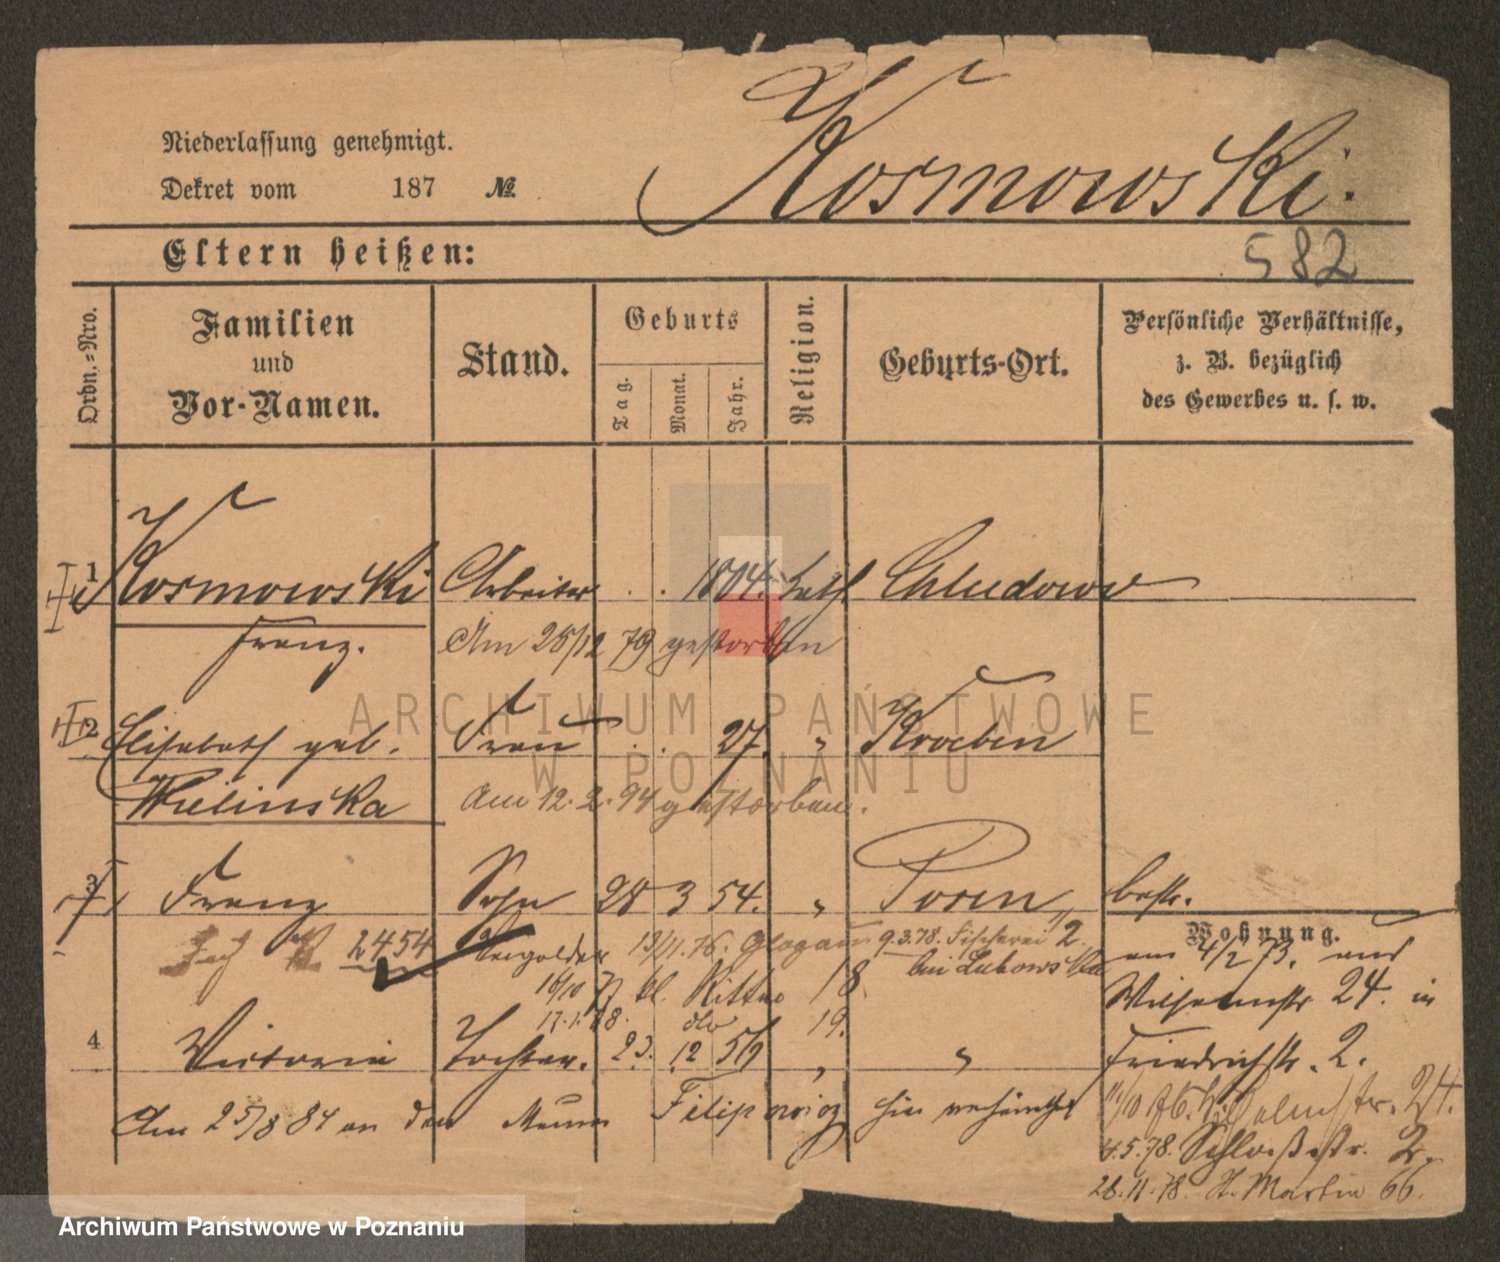 Kosmowski.
Niederlassung genehmigt.
Dekret vom 187 №.
Eltern heißen:
582
Ordn.=Nro.
Familien und Vor-Namen.
Stand.
Geburts
Tag.
Monat.
Jahr.
Religion.
Geburts-Ort.
Persönliche Verhältnisse,
z. B. bezüglich
des Gewerbes u. s. w.
1 Kosmowski Arbeiter . . 1804. kath. Chludowo
Franz. Am 25/12 79 gestorben
2 Elisabeth geb. Frau . . 27. " Kroeben
Wielinska Am 12. 2. 94 gestorben.
3 Franz Sohn 28 3 54. " Posen bestr.
Wohnung.
2454 Vergolder 13/11. 76. Glogau 9.3.78. Fischerei 2
bei Lukowska am 4/2 73. und
16/10 77 kl. Ritter 18 Wilhelmstr. 24. in
19.
4 Victoria Tochter. 23. 12 56 " " Friedrichstr. 2.
Am 25/8 84 an den Maurer Filipowicz hier verheirathet
11/10 76. Wilhelmstr. 24.
4.5.78. Schloßstr. 2.
28.11.78. St. Martin 66.
ARCHIWUM PAŃSTWOWE
W POZNANIU
Archiwum Państwowe w Poznaniu